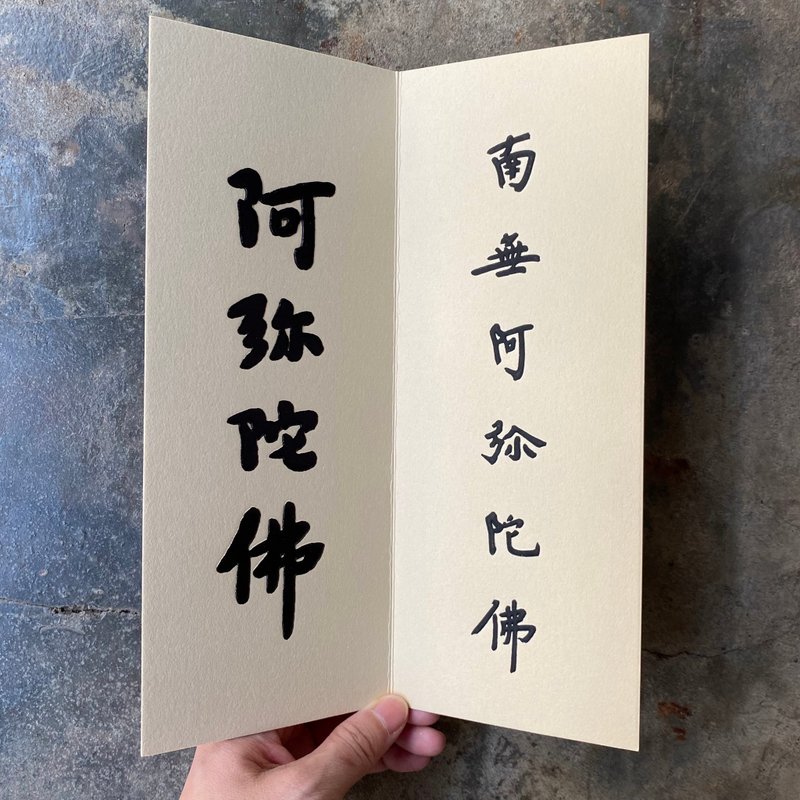 阿弥陀佛
南無阿弥陀佛